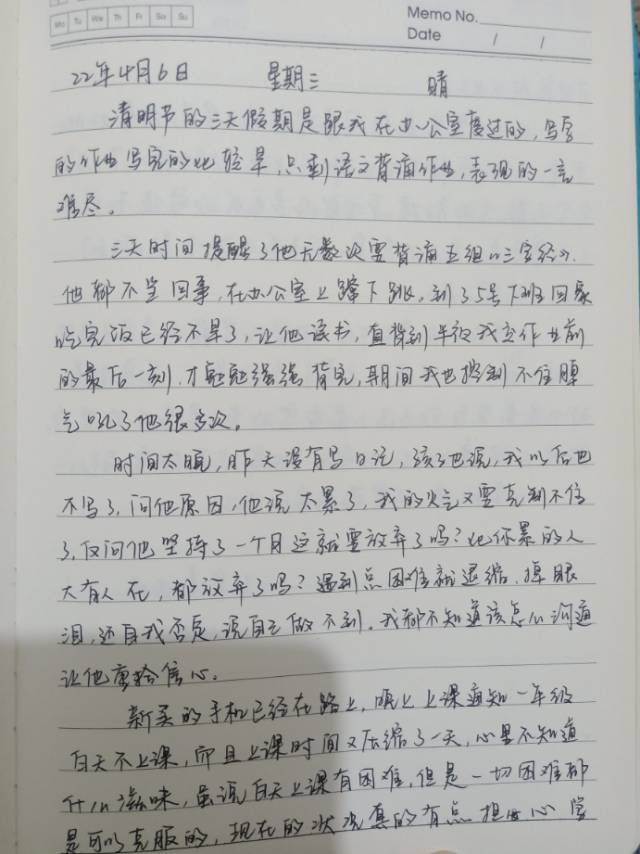 Mo Tu We Th Fr Sa Su
Memo No.
Date / /
22年4月6日 星期三 晴
清明节的三天假期是跟我在办公室度过的,写字
的作业写完的比较早,只剩语文背诵作业,表现的一言
难尽。
三天时间提醒了他无数次要背诵五组《三字经》,
他都不当回事,在办公室上蹿下跳,到了5号下班回家
吃完饭已经不早了,让他读书,直背到半夜我交作业前
的最后一刻,才勉勉强强背完,期间我也控制不住脾
气吼了他很多次。
时间太晚,昨天没有写日记,孩子也说,我以后也
不写了,问他原因,他说太累了,我的火气又要克制不住
了,反问他坚持了一个月这就要放弃了吗?比你累的人
大有人在,都放弃了吗?遇到点困难就退缩,掉眼
泪,还自我否定,说自己做不到。我都不知道该怎么沟通
让他重拾信心。
新买的手机已经在路上,晚上上课通知一年级
白天不上课,而且上课时间又压缩了一天,心里不知道
什么滋味,虽说白天上课有困难,但是一切困难都
是可以克服的,现在的状况真的有点担心学